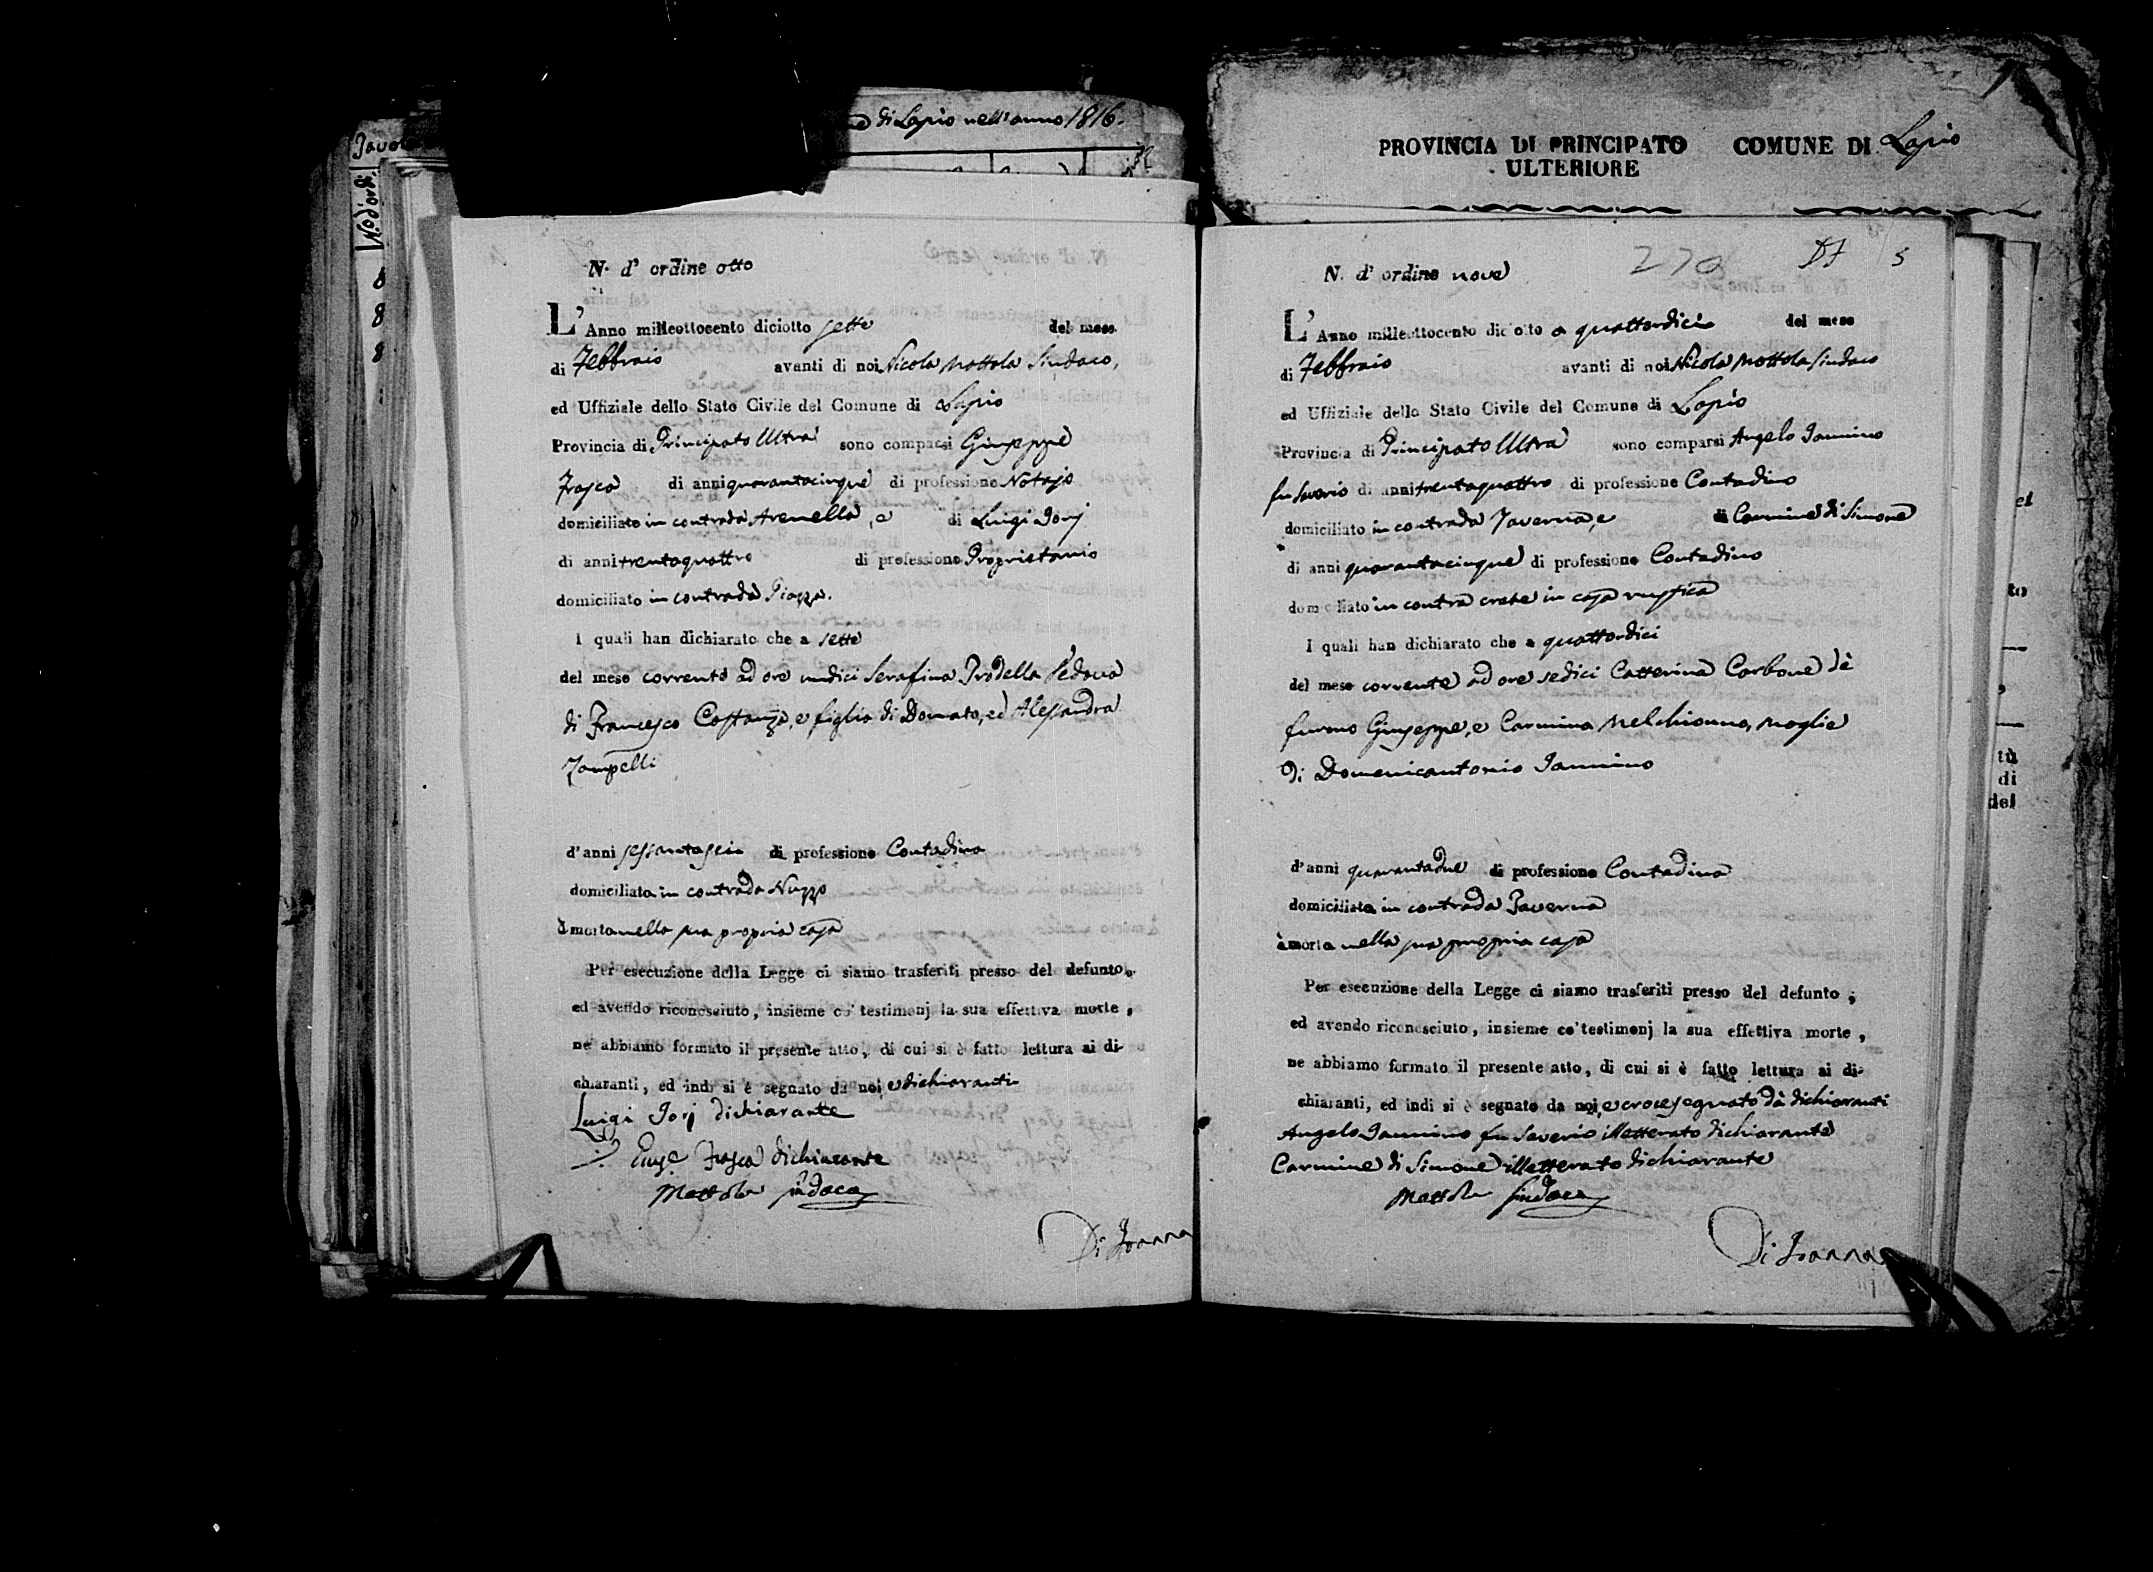 di Lapio nell'anno 1816.
Tavo
N.o d'ordi.
8
8
8
N. d' ordine otto
L'Anno milleottocento diciotto sette del mese
di Febbraio avanti di noi Nicola Mottola Sindaco,
ed Uffiziale dello Stato Civile del Comune di Lapio
Provincia di Principato Ultra sono comparsi Giuseppe
Frasca di anni quarantacinque di professione Notajo
domiciliato in contrada Arenella, e di Luigi Jorj
di anni trentaquattro di professione Proprietario
domiciliato in contrada Piazza.
I quali han dichiarato che a sette
del mese corrente ad ore undici Serafina Prodella Vedova
di Francesco Costanza, e figlia di Donato, ed Alessandra
Zampelli
d'anni sessantasei di professione Contadina
domiciliata in contrada Nuzzo
è morta nella sua propria casa
Per esecuzione della Legge ci siamo trasferiti presso del defunto,
ed avendo riconosciuto, insieme co' testimonj la sua effettiva morte,
ne abbiamo formato il presente atto, di cui si è fatto lettura ai di-
chiaranti, ed indi si è segnato da noi, e dichiaranti
Luigi Jorj dichiarante
Frasca dichiarante
Mottola Sindaco
Di Joanna
PROVINCIA DI PRINCIPATO COMUNE DI Lapio
ULTERIORE
270 5
N. d' ordine nove
L'Anno milleottocento diciotto a quattordici del mese
di Febbraio avanti di noi Nicola Mottola Sindaco
ed Uffiziale dello Stato Civile del Comune di Lapio
Provincia di Principato Ultra sono comparsi Angelo Iannino
fu Saverio di anni trentaquattro di professione Contadino
domiciliato in contrada Taverna, e di Carmine di Simone
di anni quarantacinque di professione Contadino
domiciliato in contra crete in casa rustica
I quali han dichiarato che a quattordici
del mese corrente ad ore sedici Catterina Carbone dè
furono Giuseppe, e Carmina Melchionna, moglie
di Domenicantonio Iannino
d'anni quarantadue di professione Contadina
domiciliata in contrada Taverna
è morta nella sua propria casa
Per esecuzione della Legge ci siamo trasferiti presso del defunto,
ed avendo riconosciuto, insieme co' testimonj la sua effettiva morte,
ne abbiamo formato il presente atto, di cui si è fatto lettura ai di-
chiaranti, ed indi si è segnato da noi, e crocesegnato dà dichiaranti
Angelo Iannino fu Saverio illetterato dichiarante
Carmine di Simone illetterato dichiarante
Mottola Sindaco
Di Joanna
et
to
tù
di
del